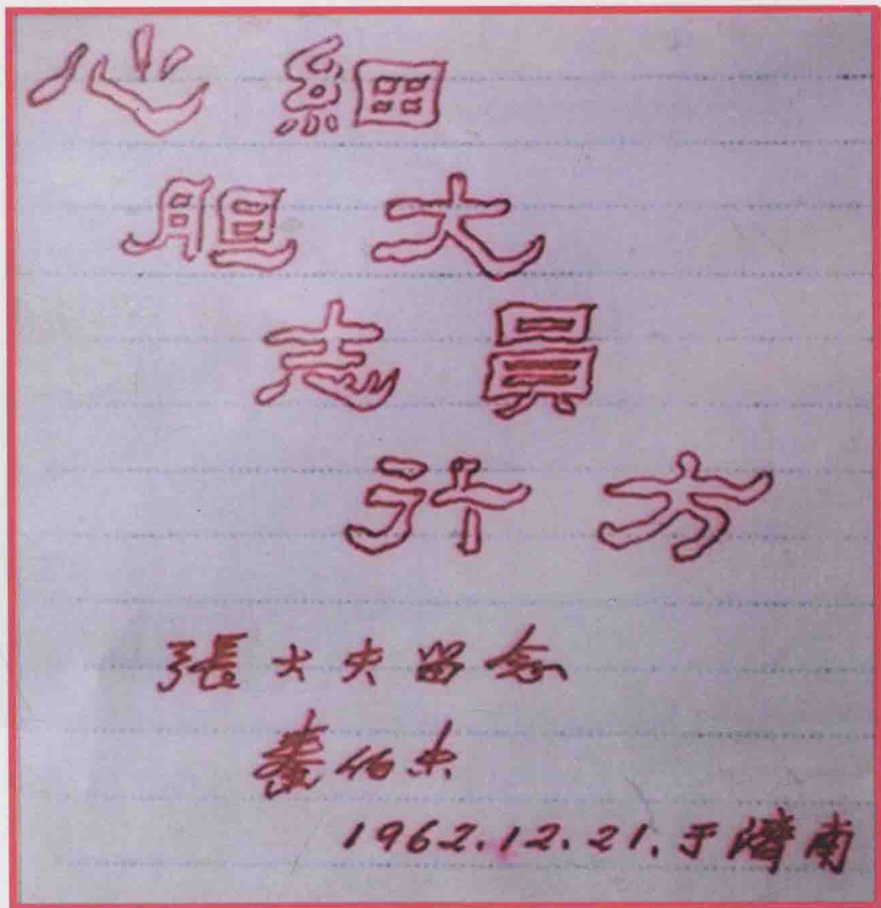 心細
胆大
志員
行方
張大夫留念
秦伯未
1962.12.21.于濟南